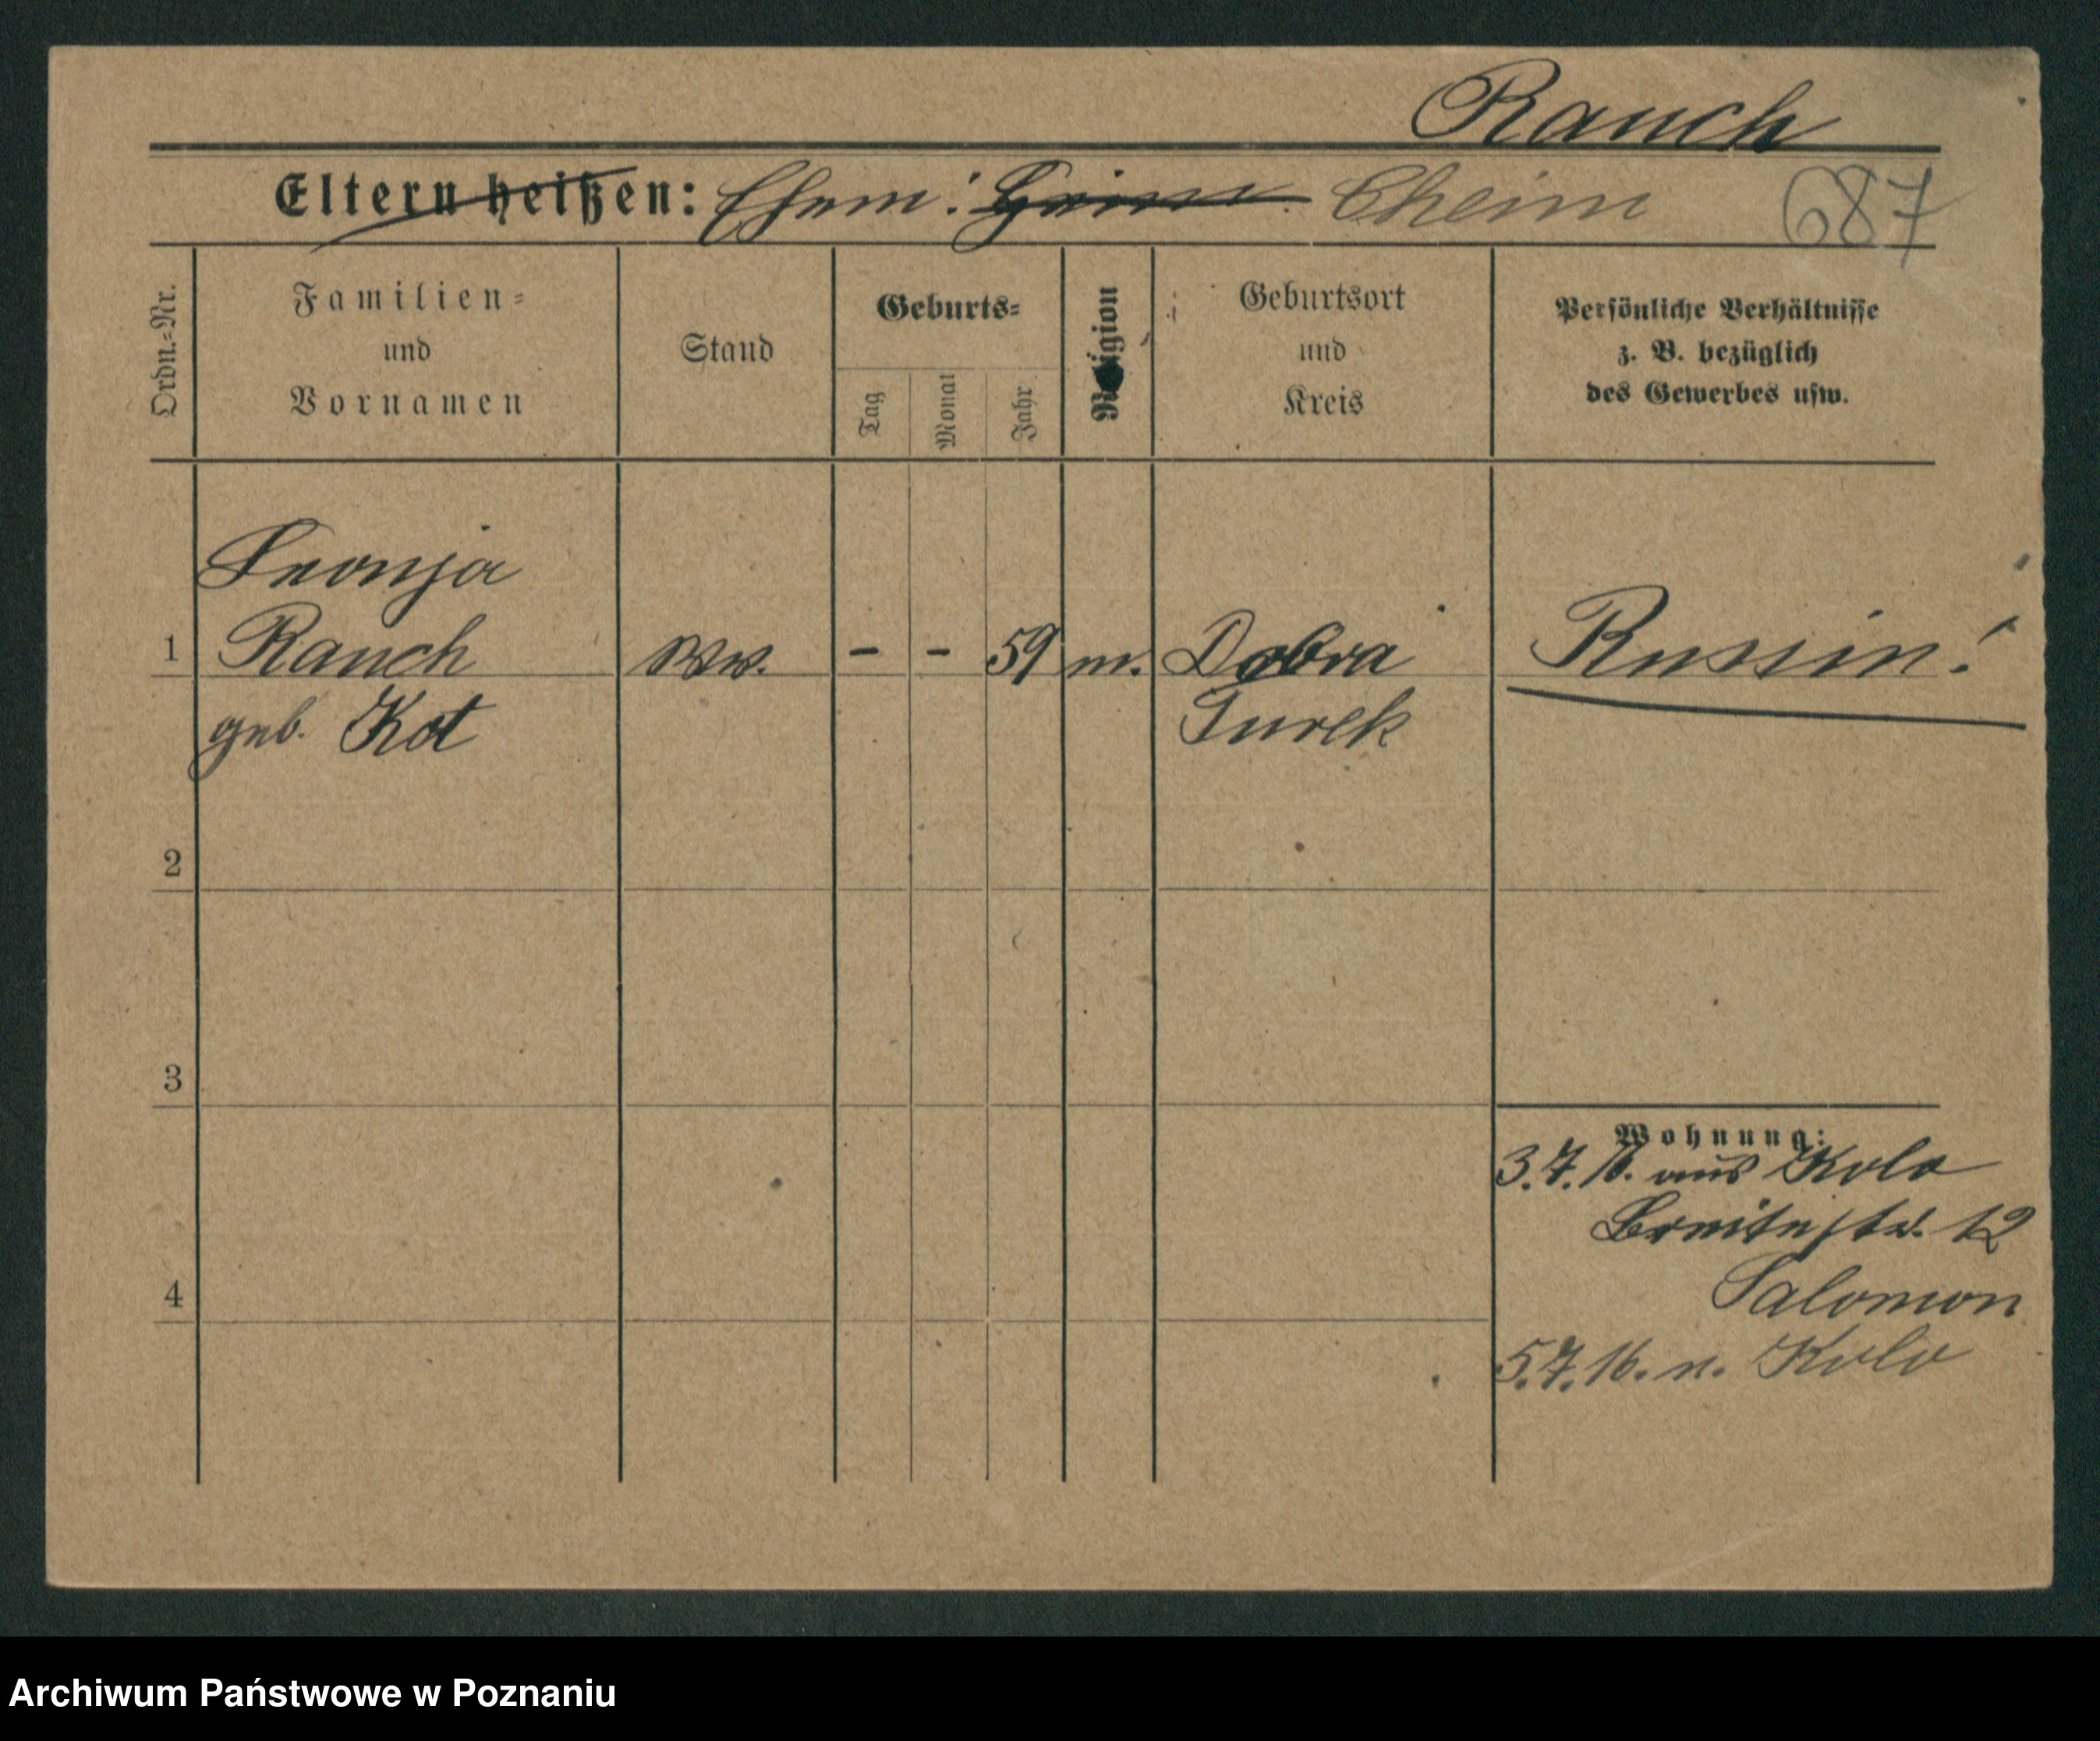 Rauch
Eltern heißen: Ehem: Cheim 687
Ordn.-Nr.
Familien-
und
Vornamen
Stand
Geburts-
Tag
Monat
Jahr
Religion
Geburtsort
und
Kreis
Persönliche Verhältnisse
z. B. bezüglich
des Gewerbes usw.
1
Rauch
geb. Kot
Ww.
-
-
59
m.
Dobra
Turek
Russin!
2
3
4
Wohnung:
3.7.16. aus Kolo
Breitestr. 12
Salomon
5.7.16. n. Kolo
Archiwum Państwowe w Poznaniu